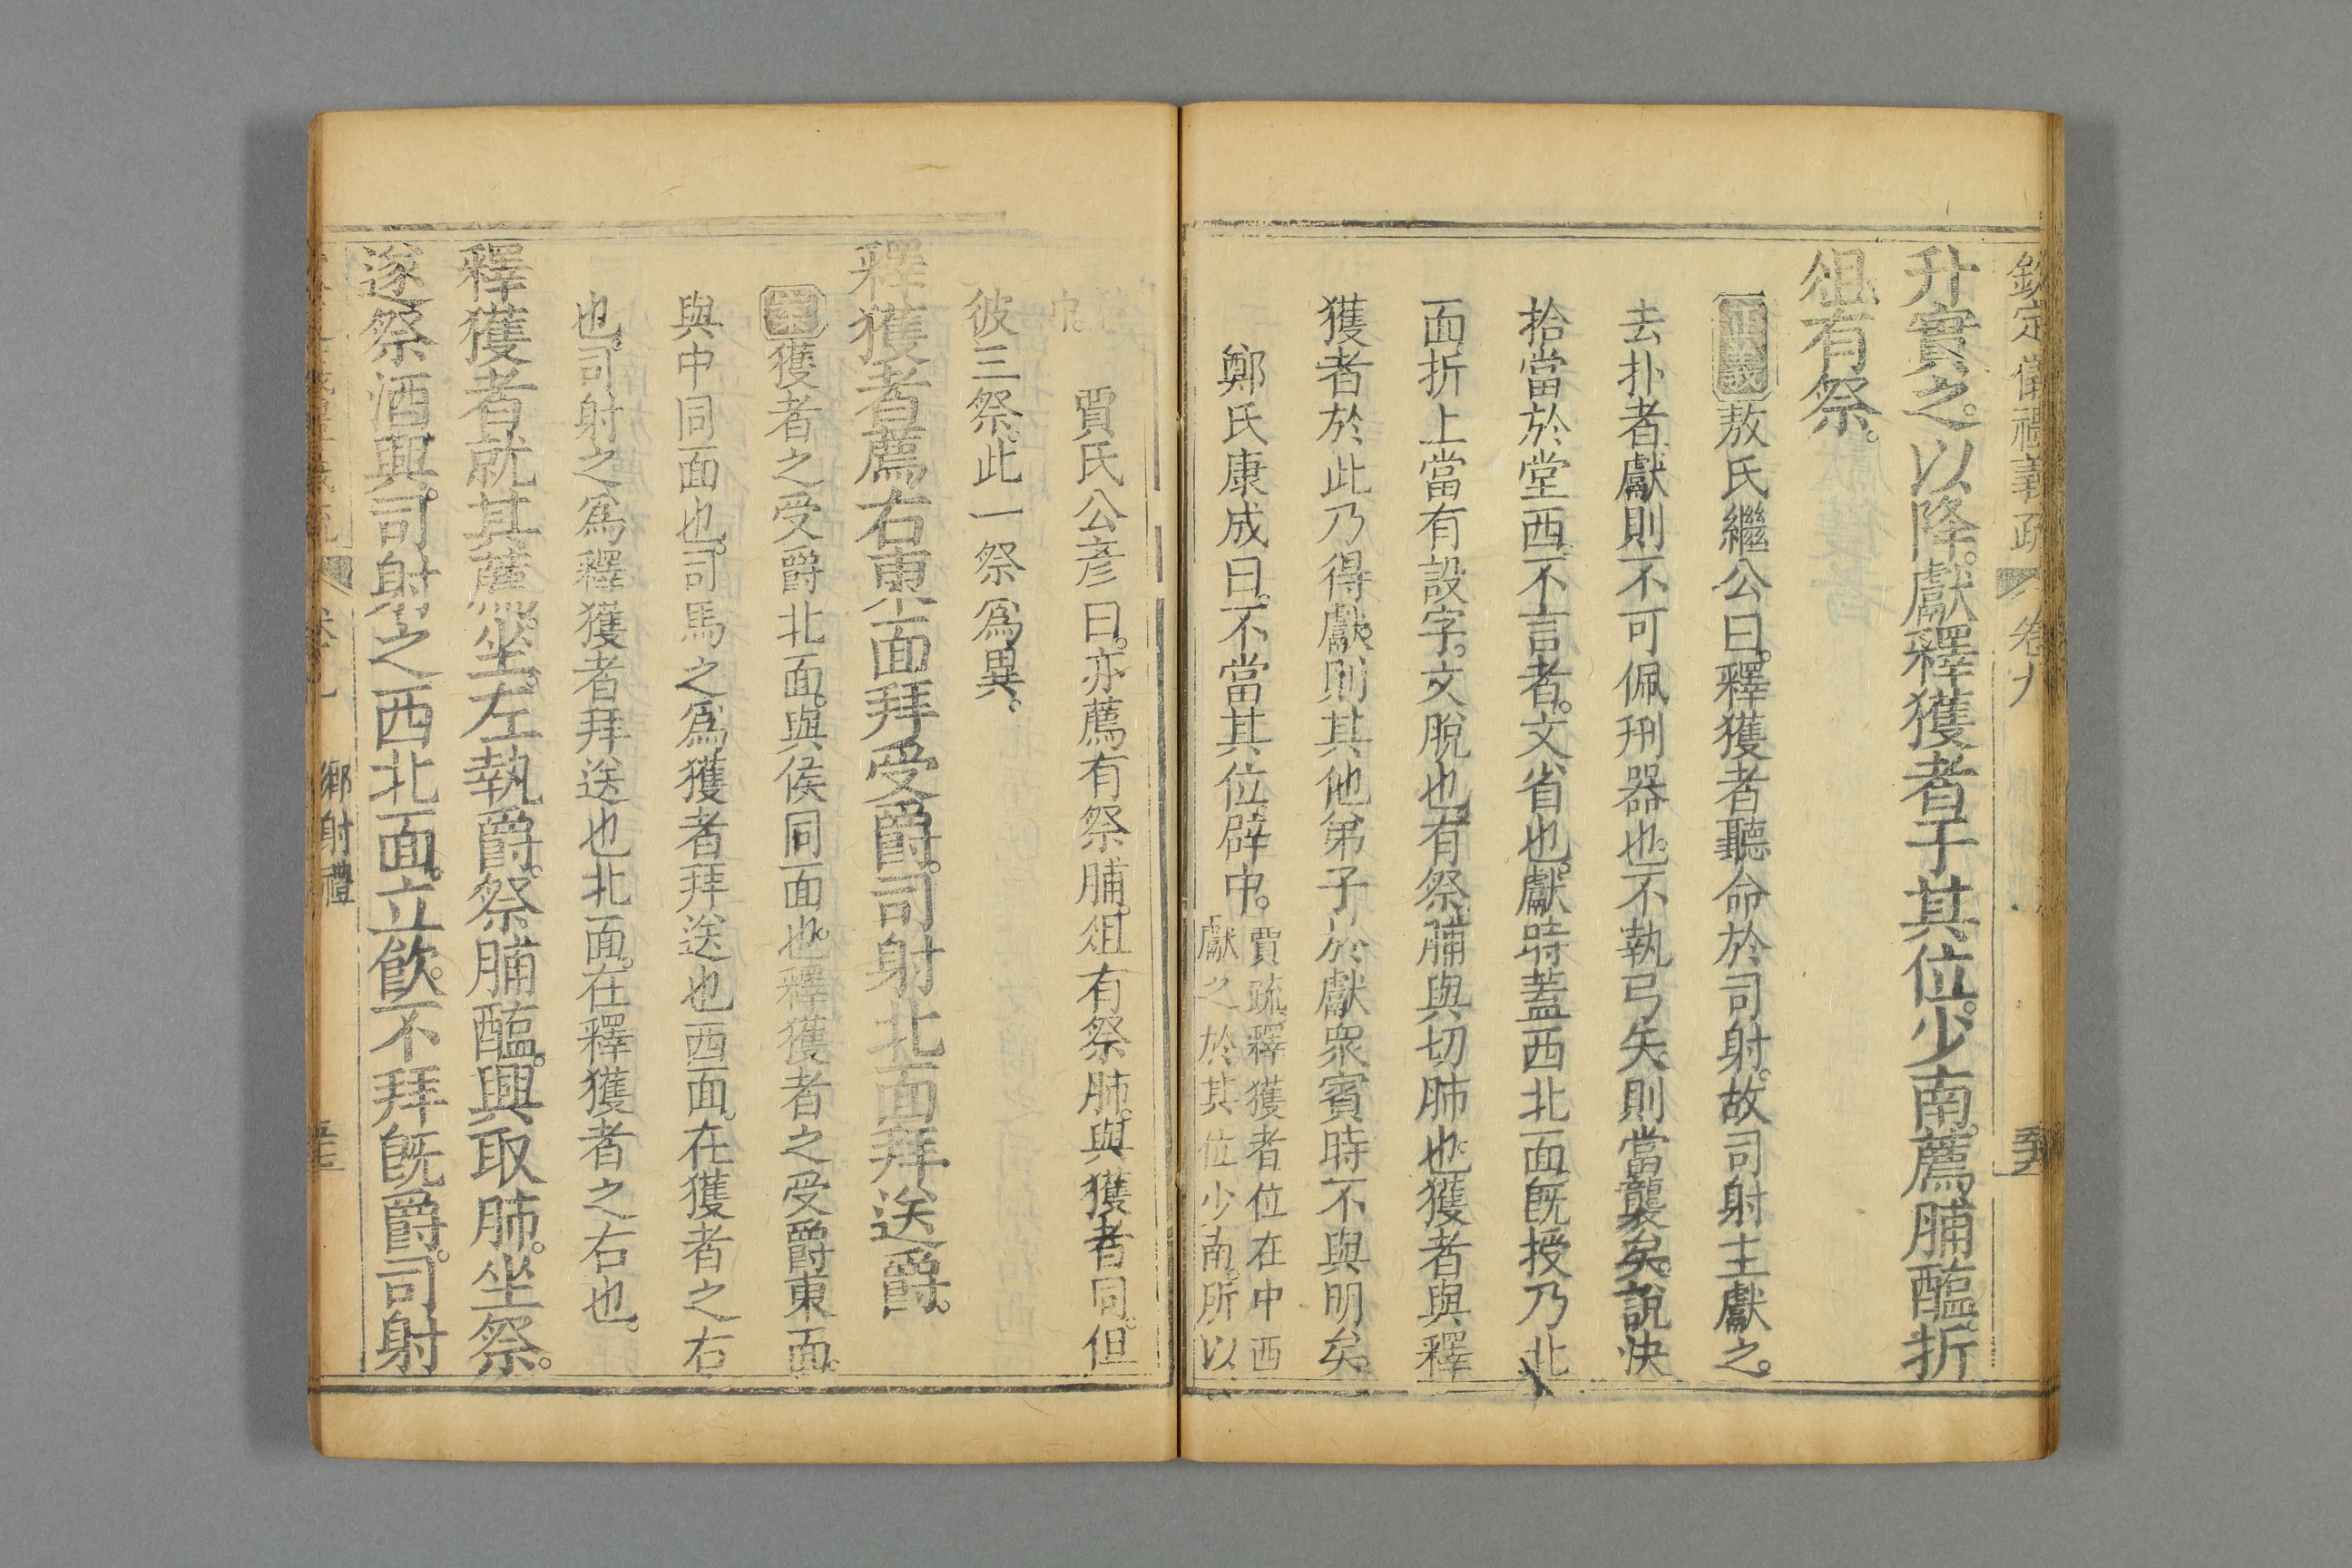 欽定儀禮義疏 卷九
升實之。以降。獻釋獲者于其位。少南。薦脯醢折
俎有祭。
正義敖氏繼公曰。釋獲者聽命於司射。故司射主獻之。
去扑者。獻則不可佩刑器也。不執弓矢。則當襲矣。說决
拾當於堂西。不言者。文省也。獻時蓋西北面。旣授乃北
面折上當有設字。文脫也。有祭脯與切肺也。獲者與釋
獲者於此乃得獻。則其他弟子於獻衆賓時不與明矣。
鄭氏康成曰。不當其位。辟中。賈疏。釋獲者位在中西
獻之於其位少南。所以
賈氏公彥曰。亦薦有祭脯。俎有祭肺。與獲者同。但
中。
彼三祭。此一祭爲異。
釋獲者薦右東面拜受爵。司射北面拜送爵。
案獲者之受爵北面。與侯同面也。釋獲者之受爵東面。
與中同面也。司馬之爲獲者拜送也西面。在獲者之右
也。司射之爲釋獲者拜送也北面。在釋獲者之右也。
釋獲者就其薦坐。左執爵。祭脯醢。興取肺。坐祭。
遂祭酒。興。司射之西北面。立飮。不拜旣爵。司射
鄉射禮